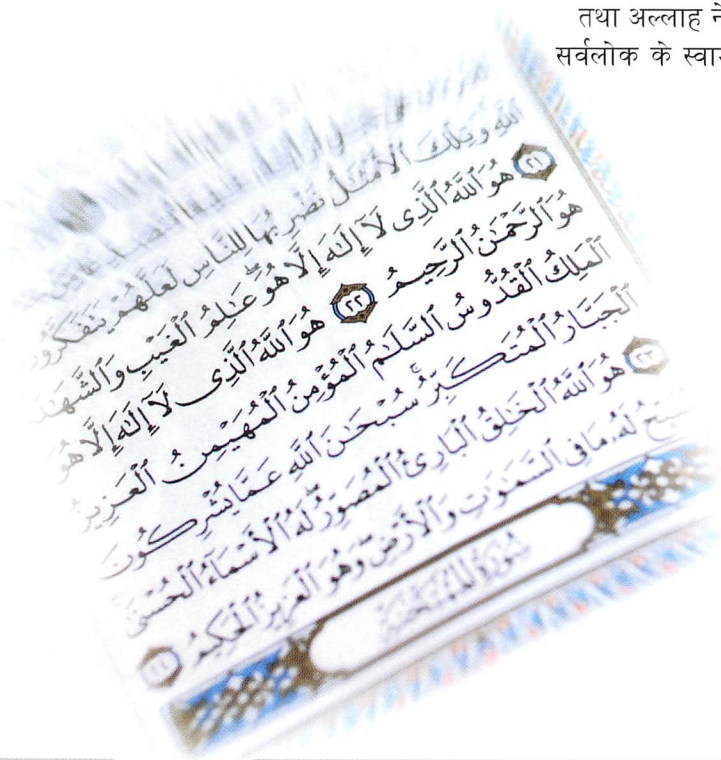 तथा अल्लाह ने
सर्वलोक के
ٱللَّهِ وَتِلْكَ ٱلْأَمْثَـٰلُ نَضْرِبُهَا لِلنَّاسِ لَعَلَّهُمْ يَتَفَكَّرُونَ
﴿٢١﴾ هُوَ ٱللَّهُ ٱلَّذِى لَآ إِلَـٰهَ إِلَّا هُوَ ۖ عَـٰلِمُ ٱلْغَيْبِ وَٱلشَّهَـٰدَ
هُوَ ٱلرَّحْمَـٰنُ ٱلرَّحِيمُ ﴿٢٢﴾ هُوَ ٱللَّهُ ٱلَّذِى لَآ إِلَـٰهَ إِلَّا هُوَ
ٱلْمَلِكُ ٱلْقُدُّوسُ ٱلسَّلَـٰمُ ٱلْمُؤْمِنُ ٱلْمُهَيْمِنُ ٱلْعَزِيزُ
ٱلْجَبَّارُ ٱلْمُتَكَبِّرُ ۚ سُبْحَـٰنَ ٱللَّهِ عَمَّا يُشْرِكُونَ
﴿٢٣﴾ هُوَ ٱللَّهُ ٱلْخَـٰلِقُ ٱلْبَارِئُ ٱلْمُصَوِّرُ ۖ لَهُ ٱلْأَسْمَآءُ ٱلْحُسْنَىٰ
يُسَبِّحُ لَهُۥ مَا فِى ٱلسَّمَـٰوَٰتِ وَٱلْأَرْضِ ۖ وَهُوَ ٱلْعَزِيزُ ٱلْحَكِيمُ ﴿٢٤﴾
سُورَةُ ٱلْمُمْتَحنَةِ